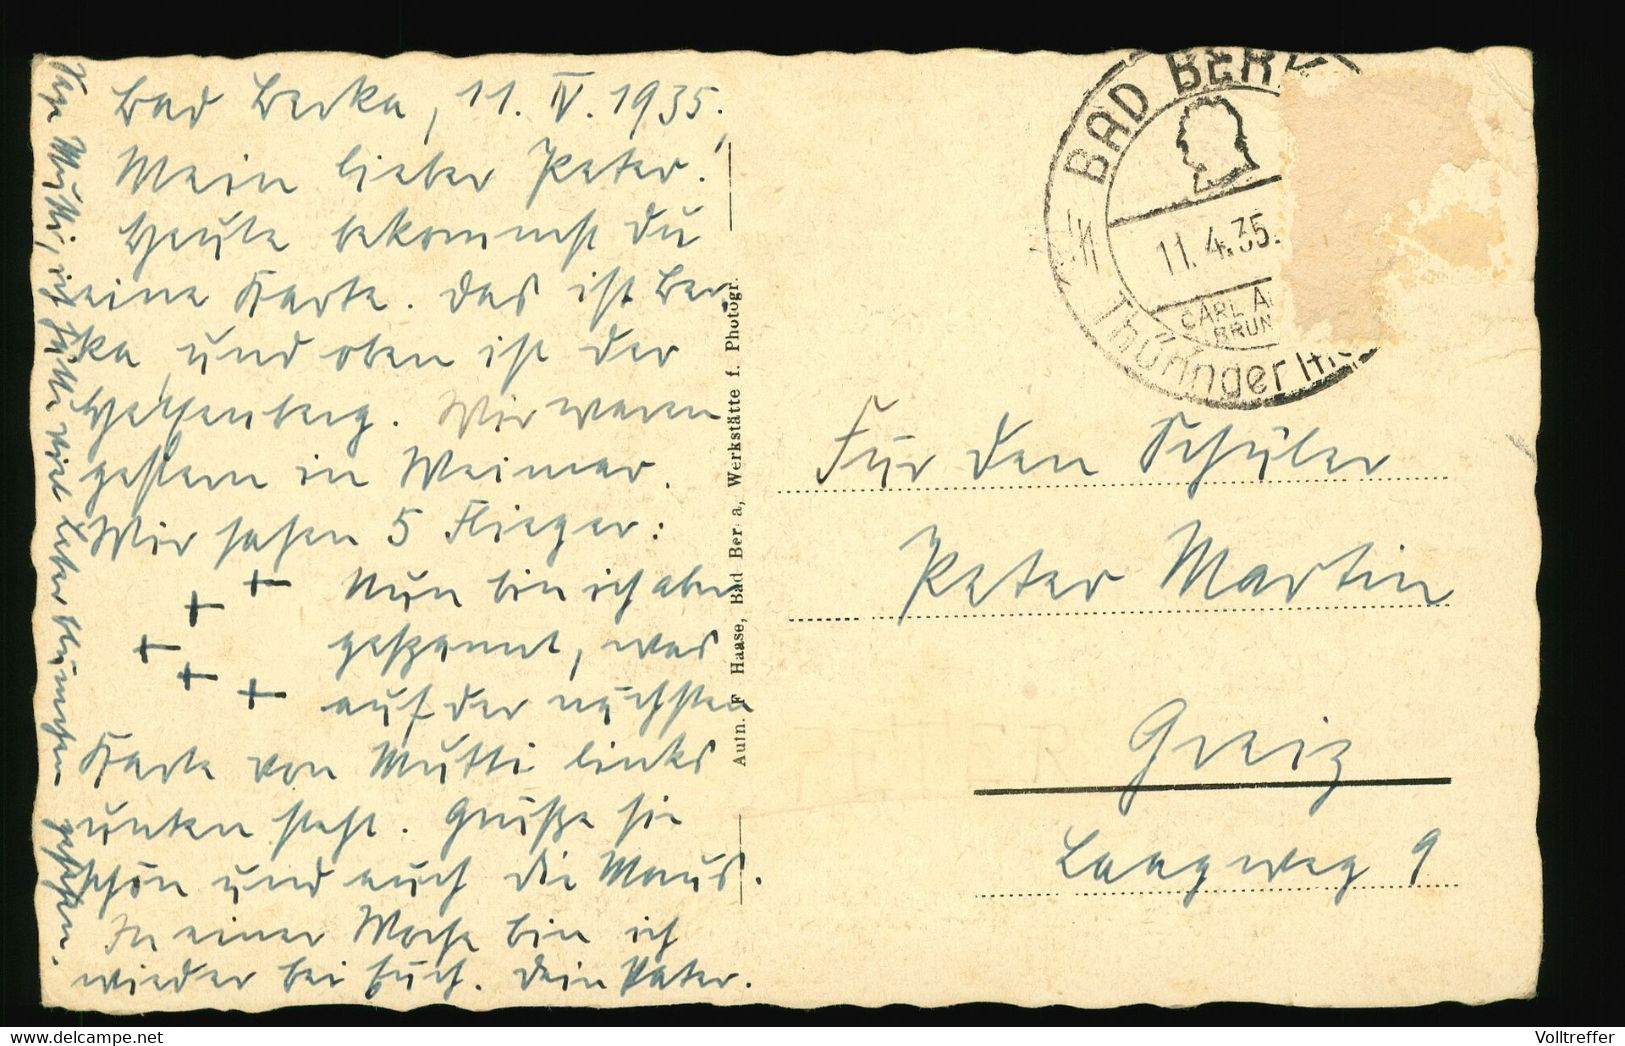 Bad Berka, 11. IV. 1935.
Mein lieber Peter!
Heute bekommst du
eine Karte. Das ist Ber-
ka und oben ist der
Hexenberg. Wir waren
gestern in Weimar.
Wir sahen 5 Flieger:
Nun bin ich aber
gespannt, was
auf der nächsten
Karte von Mutti links
unten steht. Grüße sie
schön und auch die Maus.
In einer Woche bin ich
wieder bei Euch. Dein Vater.
Sage Mutti, ich hätte viel Leberblümchen gesehen.
Aufn. F Haase, Bad Ber a, Werkstätte f. Photogr.
BAD BERK
11.4.35.
CARL A
BRUN
Thüringer
Für den Schüler
Peter Martin
Greiz
Laagweg 9
Volltreffer
delcampe.net